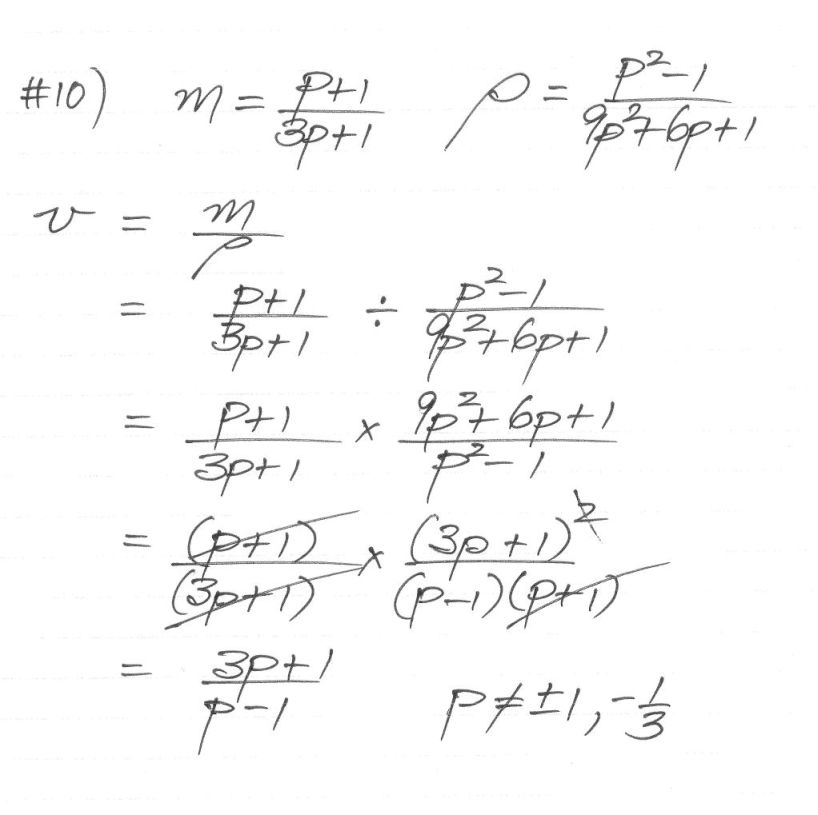 #10) m = (p+1)/(3p+1) ρ = (p²-1)/(9p²+6p+1)
v = m/ρ
= (p+1)/(3p+1) ÷ (p²-1)/(9p²+6p+1)
= (p+1)/(3p+1) × (9p²+6p+1)/(p²-1)
= (p+1)/(3p+1) × (3p+1)²/((p-1)(p+1))
= (3p+1)/(p-1) p ≠ ±1, -1/3